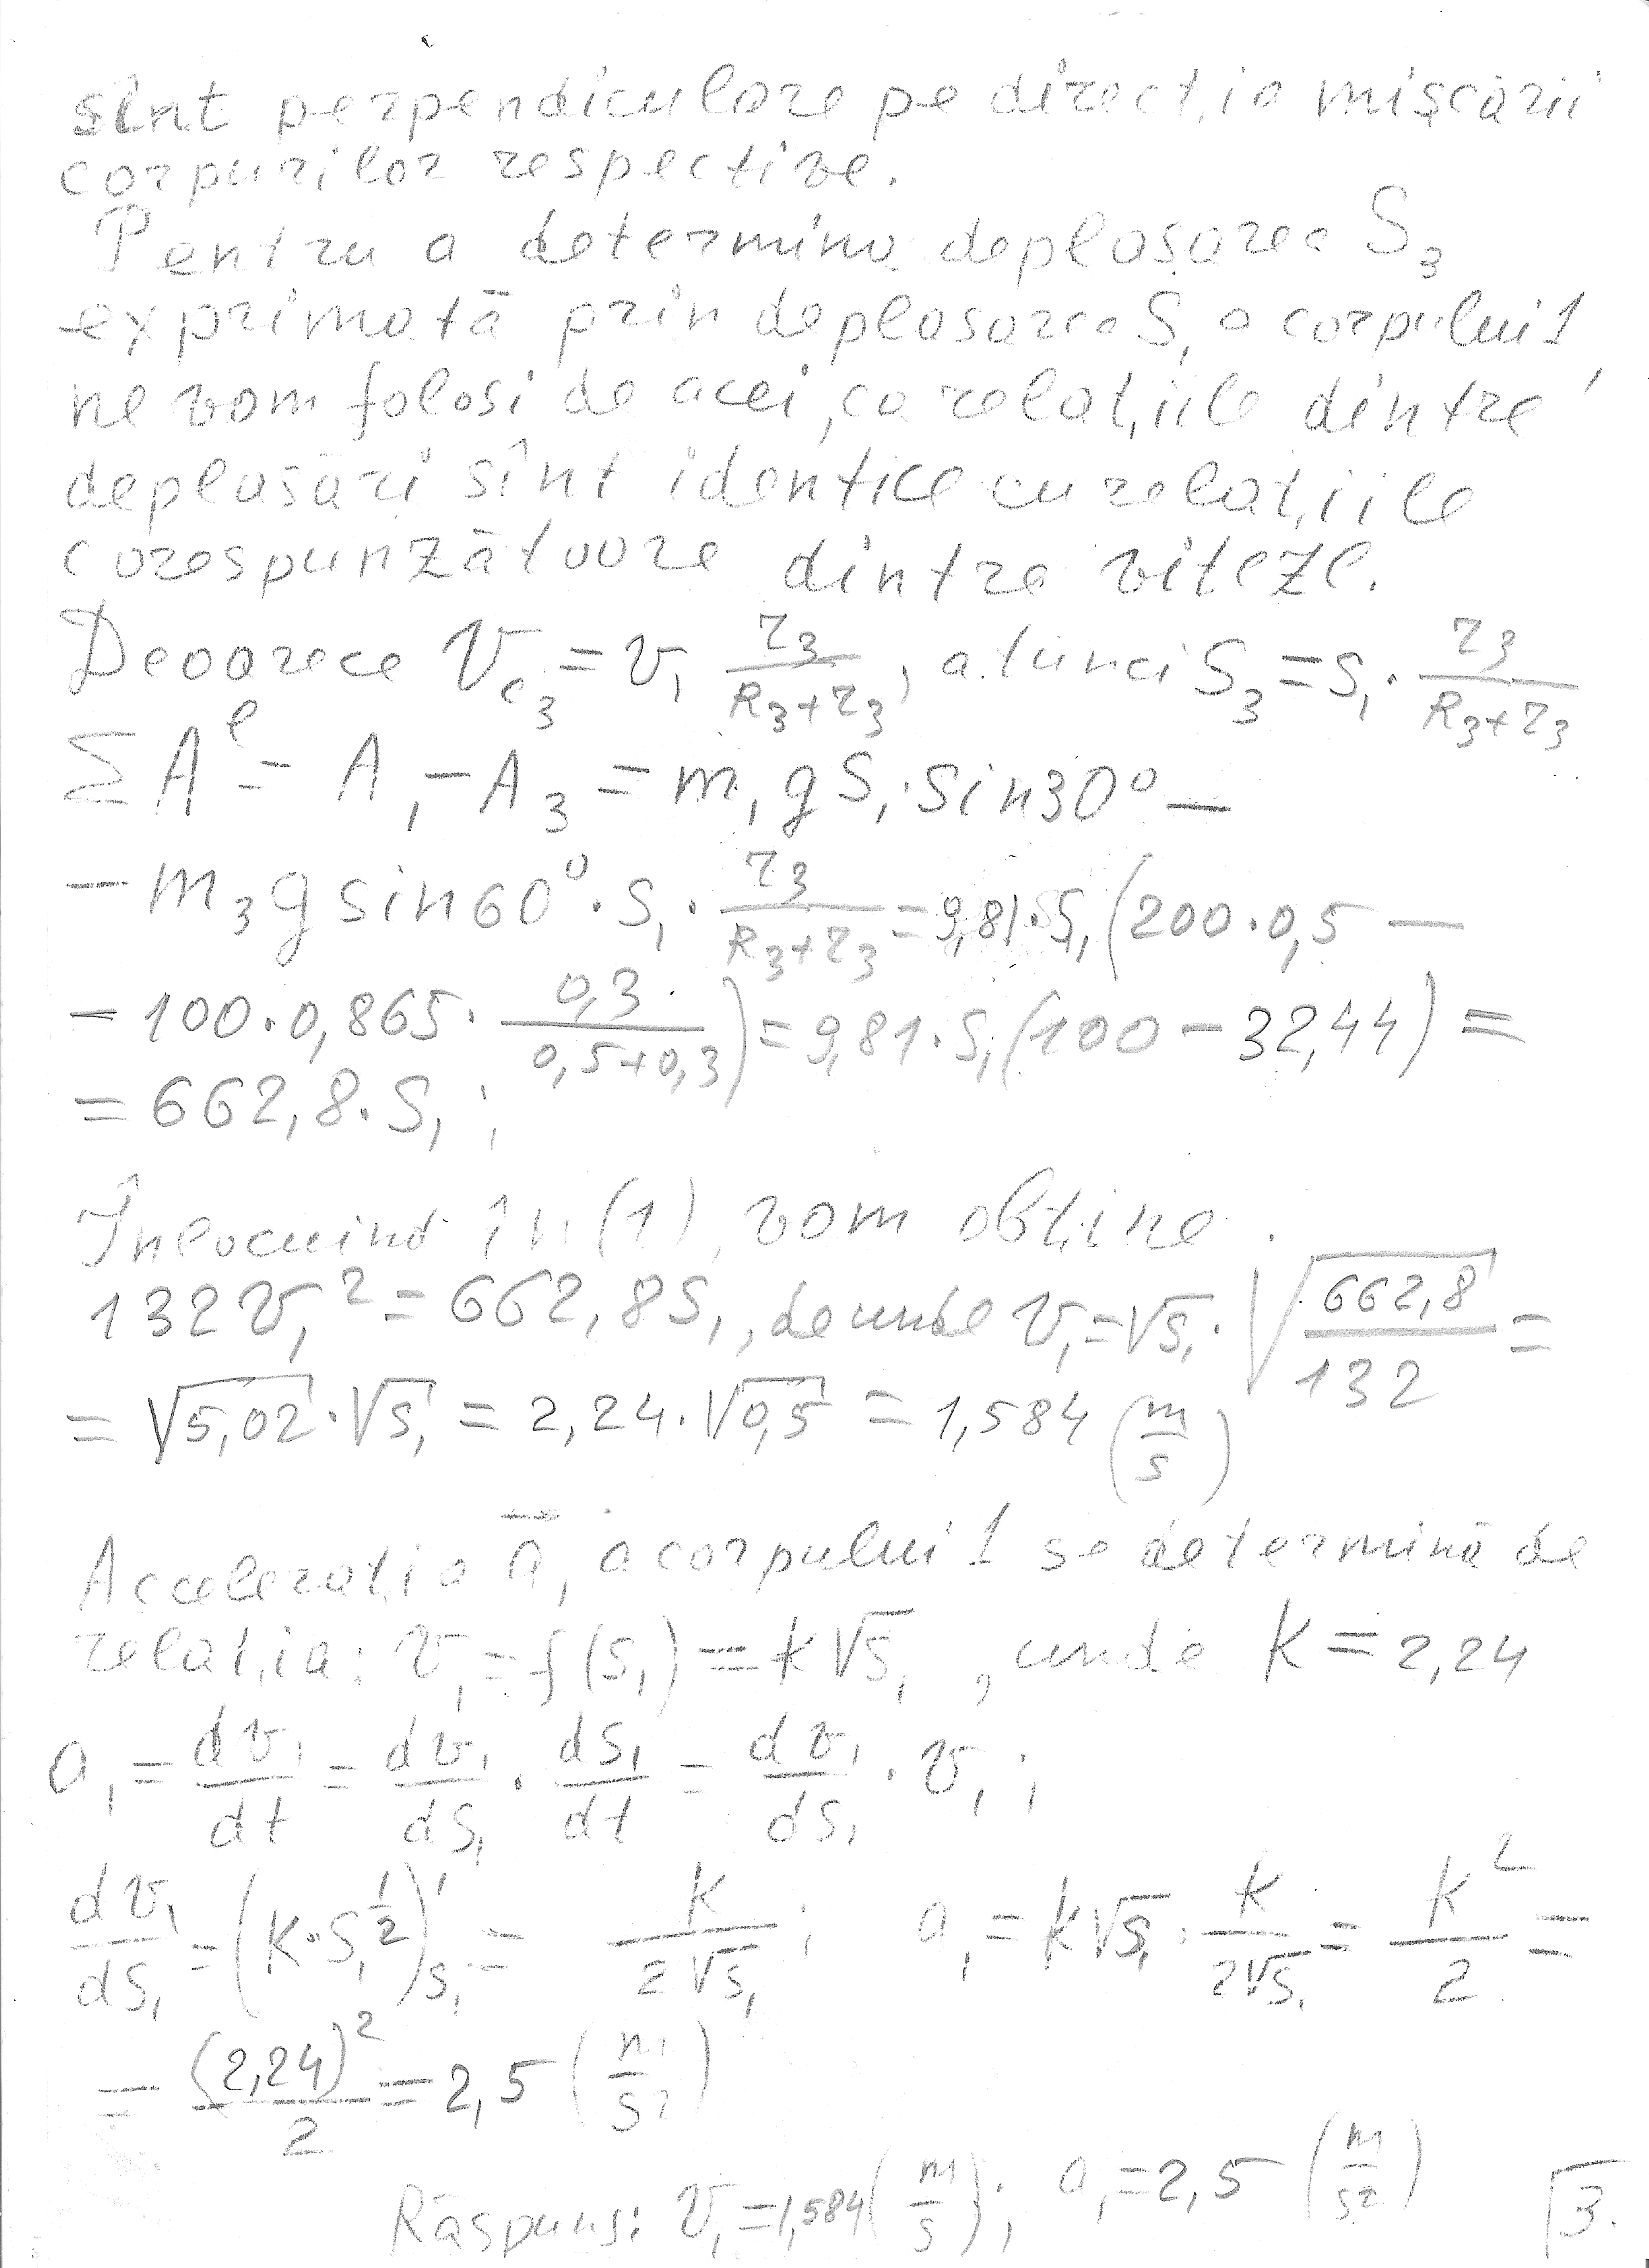 sînt perpendiculare pe direcția mișcării
corpurilor respective.
Pentru a determina deplasarea S₃
exprimată prin deplasarea S₁ a corpului 1,
ne vom folosi de acei, ca relațiile dintre
deplasări sînt identice cu relațiile
corespunzătoare dintre viteze.
Deoarece V_c₃ = v₁ r₃/(R₃+r₃), atunci S₃ = S₁ · r₃/(R₃+r₃)
ΣAᵉ = A₁ – A₃ = m₁gS₁·sin30° –
– m₃g sin60° · S₁ · r₃/(R₃+r₃) = 9,81·S₁(200·0,5 –
– 100·0,865 · 0,3/(0,5+0,3)) = 9,81·S₁(100 – 32,44) =
= 662,8·S₁;
Înlocuind în (1) vom obține:
132v₁² = 662,8S₁, de unde v₁ = √S₁ · √(662,8/132) =
= √5,02 · √S₁ = 2,24·√0,5 = 1,584 (m/s)
Accelerația a⃗₁ a corpului 1 se determină de
relația: v₁ = f(S₁) = k√S₁, unde K = 2,24
a₁ = dv₁/dt = dv₁/dS₁ · dS₁/dt = dv₁/dS₁ · v₁;
dv₁/dS₁ = (K·S₁^(1/2))'_S₁ = K/(2√S₁); a₁ = k√S₁ · K/(2√S₁) = K²/2 =
= (2,24)²/2 = 2,5 (m/s²)
Răspuns: v₁ = 1,584 (m/s); a₁ = 2,5 (m/s²)
3.